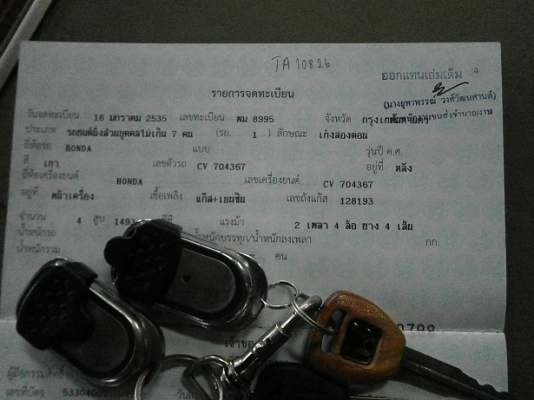 TA 10826
ออกแทนเล่มเดิม
รายการจดทะเบียน
วันจดทะเบียน 16 มกราคม 2535 เลขทะเบียน พม 8995 จังหวัด
ประเภท รถยนต์นั่งส่วนบุคคลไม่เกิน 7 คน (รย. 1 ) ลักษณะ เก๋งสองตอน
ยี่ห้อรถ HONDA แบบ รุ่นปี ค.ศ.
สี เทา เลขตัวรถ CV 704367 อยู่ที่ หลัง
ยี่ห้อเครื่องยนต์ HONDA เลขเครื่องยนต์ CV 704367
อยู่ที่ หน้าเครื่อง เชื้อเพลิง แก๊ส+เบนซิน เลขถังแก๊ส 128193
จำนวน 4 สูบ แรงม้า 2 เพลา 4 ล้อ ยาง 4 เส้น
น้ำหนักรถ น้ำหนักบรรทุก/น้ำหนักลงเพลา กก.
น้ำหนักรวม คน
เจ้าของ
เลขที่บัตร